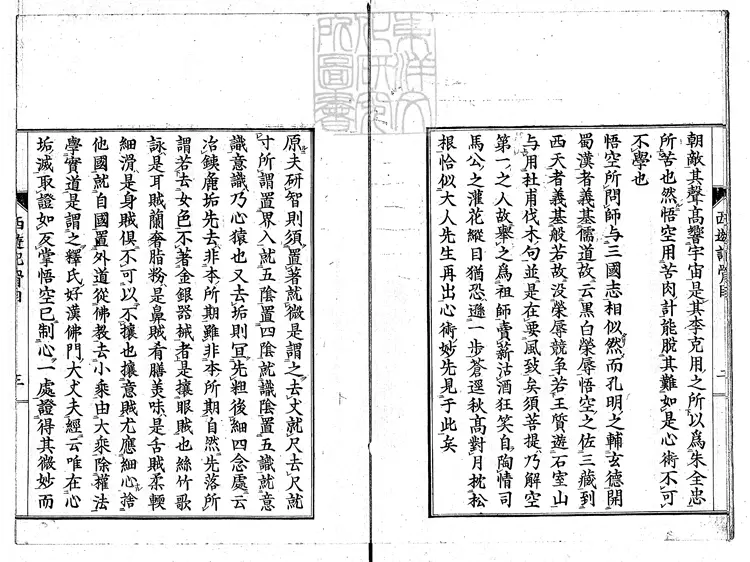 東洋文
化研究
所圖書
朝敵其聲髙響宇宙是其李克用之所以爲朱全忠
所苦也然悟空用苦肉計能脫其難如是心術不可
不學也
悟空所問師与三國志相似然而孔明之輔玄德開
蜀漢者義基儒道故云黑白榮辱悟空之佐三藏到
西天者義基般若故没榮辱競爭若王質遊石室山
与用杜甫伐木句並是在要風致矣須菩提乃解空
第一之人故舉之爲祖師賣薪沽酒狂笑自陶情司
馬公之灌花縱目猶恐遜一步蒼逕秋髙對月枕松
根恰似大人先生再出心術妙先見于此矣
原夫研智則須置著就微是謂之去丈就尺去尺就
寸所謂置界入就五陰置四陰就識陰置五識就意
識意識乃心猿也又去垢則宜先麁後細四念處云
冶鋏麁垢先去非本所期雖非本所期自然先落所
謂若去女色不著金銀器械者是攘眼賊也絲竹歌
詠是耳賊蘭奢脂粉是鼻賊肴膳美味是舌賊柔輭
細滑是身賊俱不可以不攘也攘意賊尤應細心捨
他國就自國置外道從佛教去小乘由大乘除權法
學實道是謂之釋氏好漢佛門大丈夫經云唯在心
垢滅取證如反掌悟空已制心一處證得其微妙而
西遊記
二